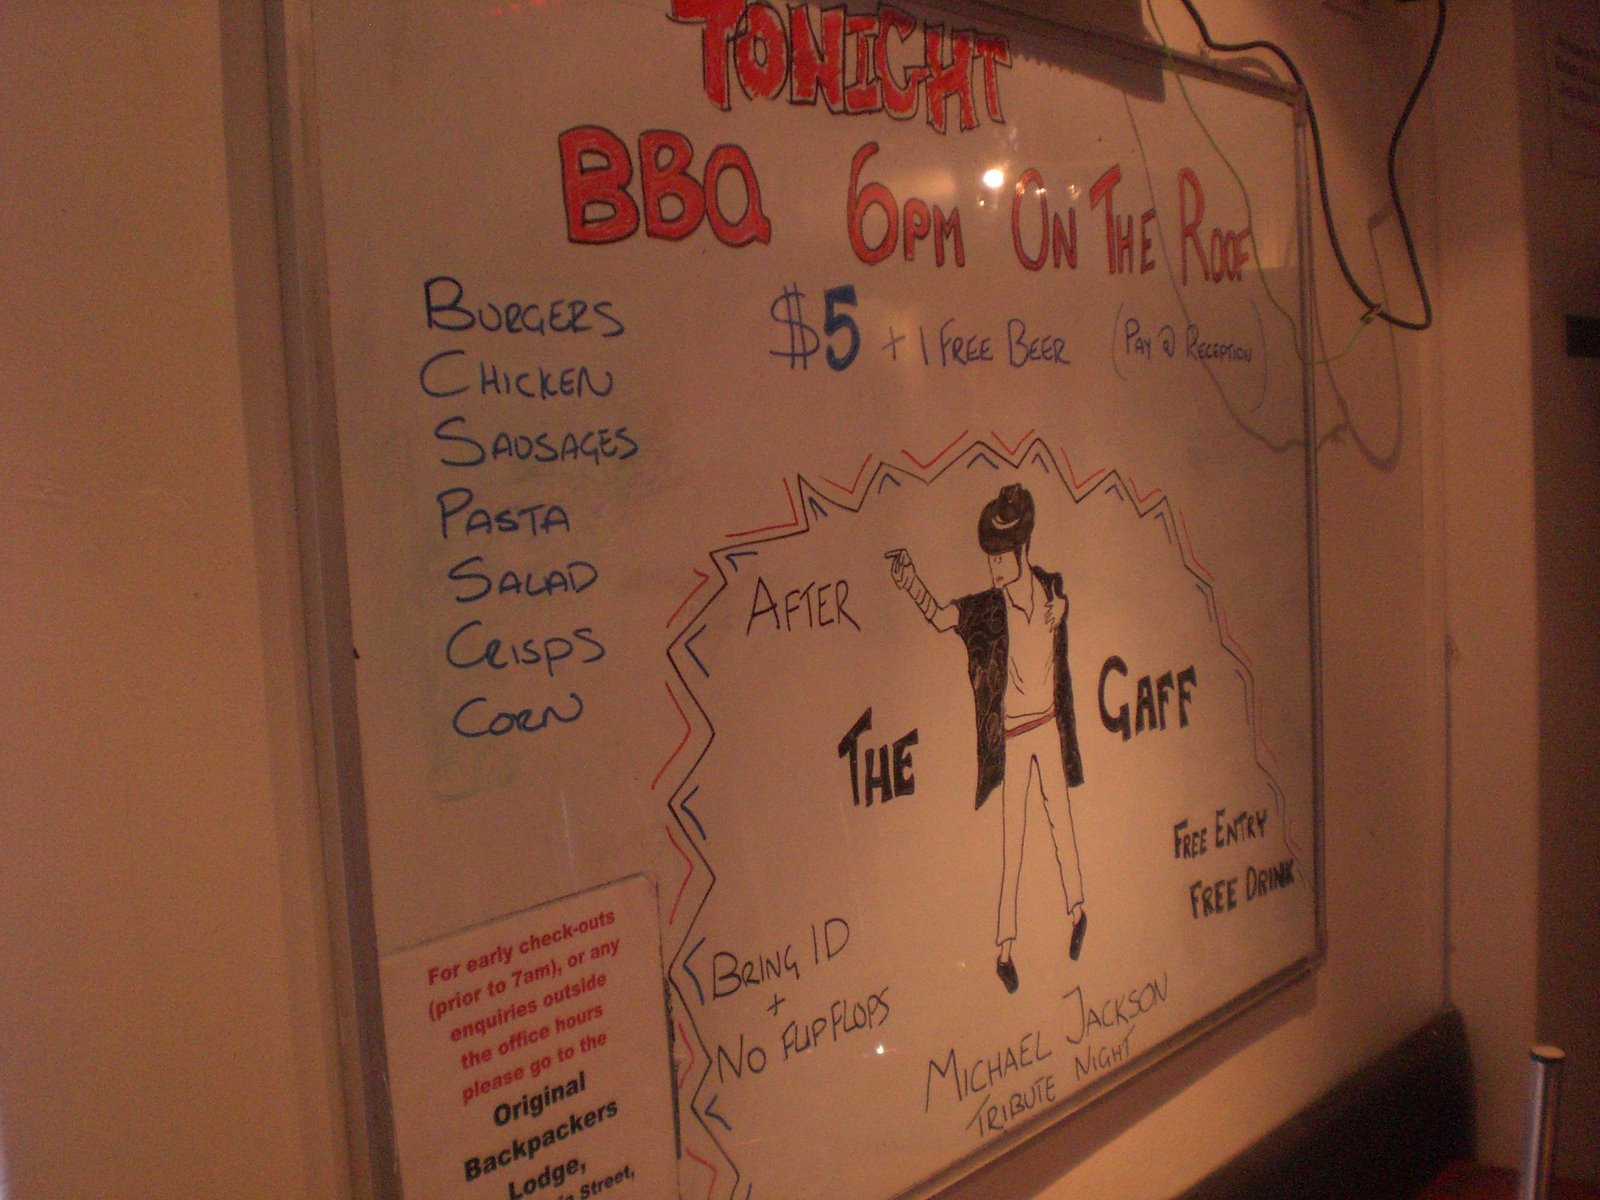 TONIGHT
BBQ 6PM ON THE ROOF
$5 + 1 FREE BEER (PAY @ RECEPTION)
BURGERS
CHICKEN
SAUSAGES
PASTA
SALAD
CRISPS
CORN
AFTER
THE GAFF
FREE ENTRY
FREE DRINK
BRING ID
+
NO FLIPFLOPS
MICHAEL JACKSON
TRIBUTE NIGHT
For early check-outs
(prior to 7am), or any
enquiries outside
the office hours
please go to the
Original
Backpackers
Lodge,
Street,